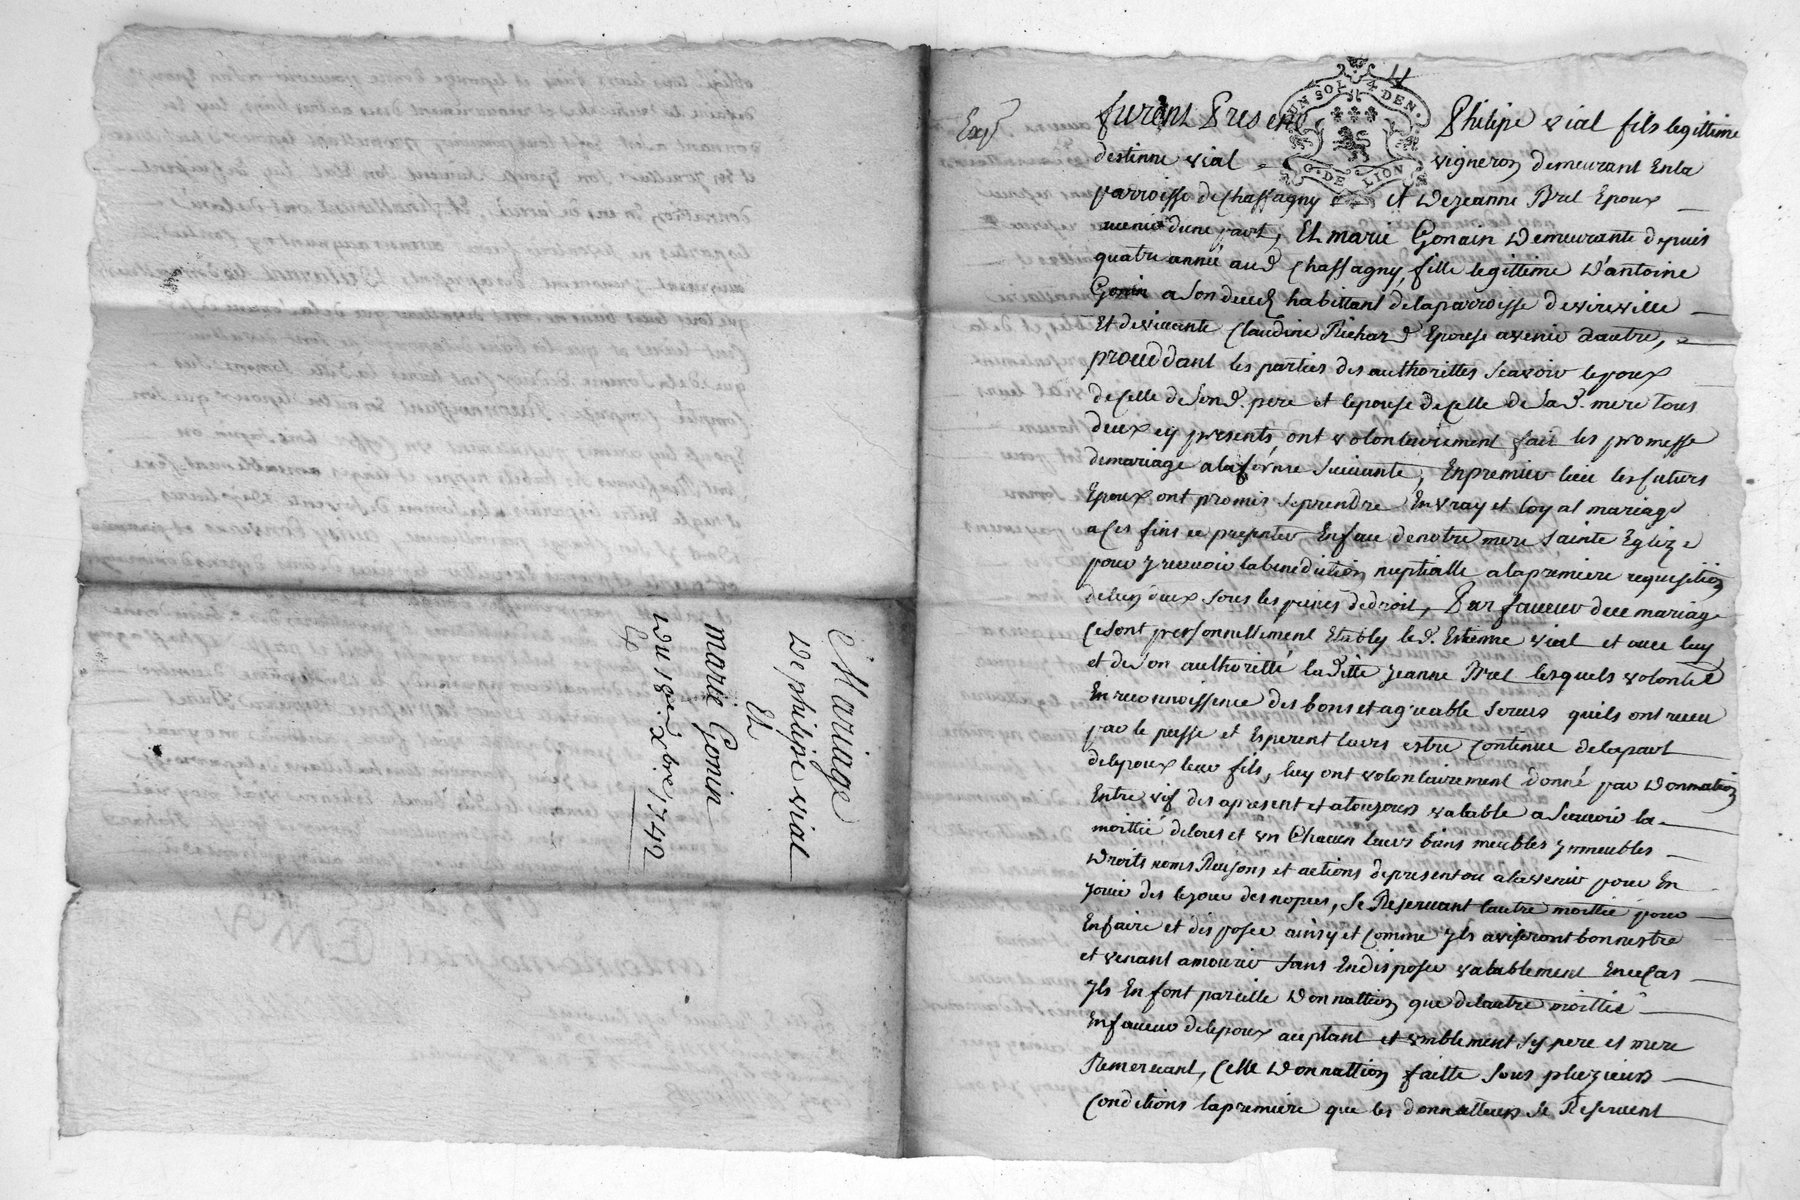 Mariage
De philipe vial
Et
marie Gonin
Du 18e xbre 1742
Ex
Exp
UN SOL 4 DEN.
G. DE LION
furent Presens Philipe vial fils legittime
destienne vial vigneron demeurant En la
parroisse de chassagny et De jeanne Brel Epoux
avenir dune part, Et marie Gonain Demeurante depuis
quatre année aud. chassagny, fille legittime D'antoine
Gonin a son deced habittant de la parroisse de vireville
Et de vivante Claudine Richard Epouse avenir dautre,
proceddant les parties des authorittes scavoir lepoux
de celle de Sond. pere et lepouse de celle de Sad. mere tous
deux cy presents ont volontairement fait les promesse
de mariage a la forme Suivante, En premier lieu les futurs
Epoux ont promis Se prendre En vray et loyal mariage
a ces fins ce presenter En face de notre mere Sainte Eglize
pour y recevoir la benediction nuptialle a la premiere requisition
de lun deux Sous les peines de droit, Par faveur duce mariage
Ce Sont personnellement Etably led. Estienne vial et avec luy
et de Son authoritté laditte jeanne Brel lesquels volonté
En reconnoissence des bons et agreable Services quils ont receu
par le passe et Esperent leurs estre continue de la part
de lepoux leur fils, luy ont volontairement donné par Donnation
Entre vif des a present et a toujours valable a Scavoir la
moittié de tous et un Chacun leurs biens meubles ymmeubles
Droits noms Raisons et actions de present ou a lavenir pour En
jouir des le jour des nopces, Se Reservant lautre moittié pour
En faire et disposer ainsy et comme yls aviseront bon estre
et venant a mourir Sans En disposer valablement En ce cas
yls En font pareille Donnattion que de lautre moittié
En faveur de lepoux aceptant et humblement Sesd. pere et mere
Remerciant, Celle Donnattion faitte Sous pluzieurs
Conditions la premiere que les donnatteurs Se Reservent